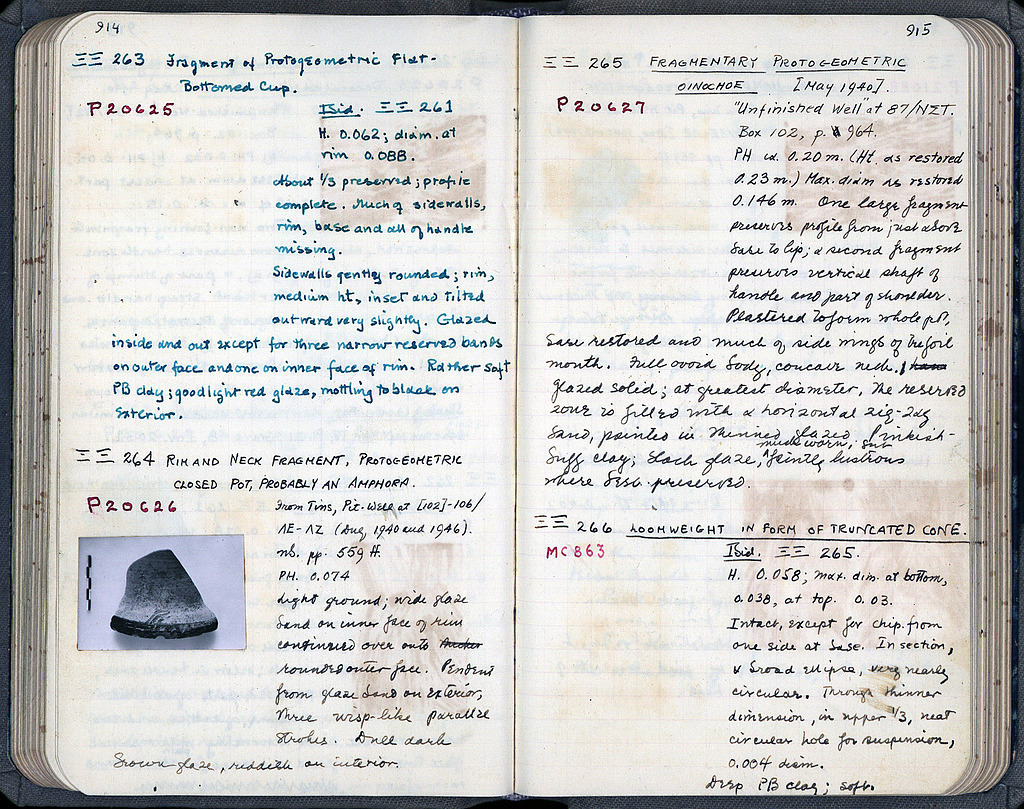 914
ΞΞ 263 Fragment of Protogeometric Flat-
Bottomed Cup.
P20625
Ibid. ΞΞ 261
H. 0.062; diam. at
rim 0.088.
About 1/3 preserved; profile
complete. Much of sidewalls,
rim, base and all of handle
missing.
Sidewalls gently rounded; rim,
medium ht, inset and tilted
outward very slightly. Glazed
inside and out except for three narrow reserved bands
on outer face and one on inner face of rim. Rather soft
PB clay; good light red glaze, mottling to black on
exterior.
ΞΞ 264 RIM AND NECK FRAGMENT, PROTOGEOMETRIC
CLOSED POT, PROBABLY AN AMPHORA.
P20626
From Tins, Pit-Well at [102]-106/
ΛE-ΛZ (Aug. 1940 and 1946).
nb. pp. 559 ff.
PH. 0.074
Light ground; wide glaze
band on inner face of rim
continued over onto
rounded outer face. Pendent
from glaze band on exterior,
three wisp-like parallel
strokes. Dull dark
brown glaze, reddish on interior.
915
ΞΞ 265 FRAGMENTARY PROTOGEOMETRIC
OINOCHOE [May 1940].
P20627
"Unfinished Well" at 87/NΣT.
Box 102, p. 964.
PH ca. 0.20 m. (Ht. as restored
0.23 m.) Max. diam as restored
0.146 m. One large fragment
preserves profile from just above
base to lip; a second fragment
preserves vertical shaft of
handle and part of shoulder.
Plastered to form whole pot,
base restored and much of side wings of trefoil
mouth. Full ovoid body, concave neck.
Glazed solid; at greatest diameter, the reserved
zone is filled with a horizontal zig-zag
band, painted in thinned glaze. Pinkish-
buff clay; black glaze, much worn, but faintly lustrous
where best preserved.
ΞΞ 266 LOOMWEIGHT IN FORM OF TRUNCATED CONE.
MC863
Ibid. ΞΞ 265.
H. 0.058; max. dim. at bottom,
0.038, at top. 0.03.
Intact, except for chip from
one side at base. In section,
v broad ellipse, very nearly
circular. Through thinner
dimension, in upper 1/3, neat
circular hole for suspension,
0.004 diam.
Deep PB clay; soft.